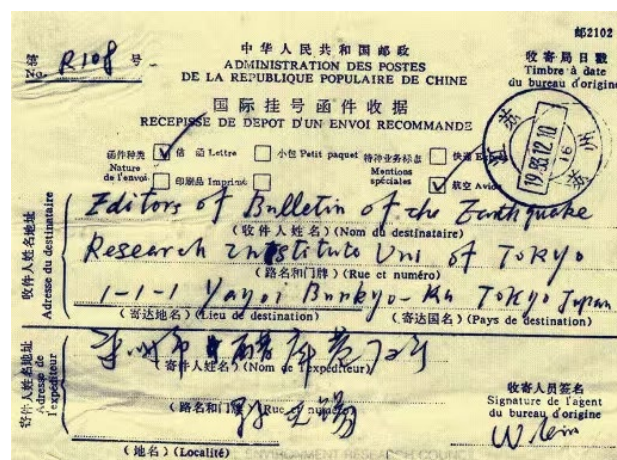 邮2102
第 No. R108 号
中华人民共和国邮政
ADMINISTRATION DES POSTES
DE LA REPUBLIQUE POPULAIRE DE CHINE
收寄局日戳
Timbre à date
du bureau d'origine
国际挂号函件收据
RECEPISSE DE DEPOT D'UN ENVOI RECOMMANDE
函件种类 信 函 Lettre 小包 Petit paquet 特种业务标志 快递
Nature de l'envoi 印刷品 Imprimé Mentions spéciales 航空 Avion
江苏 苏州
1988.12.10
16
收件人姓名地址
Adresse du destinataire
Editors of Bulletin of the Earthquake
(收件人姓名)(Nom du destinataire)
Research Institute Uni of Tokyo
(路名和门牌)(Rue et numéro)
1-1-1 Yayoi Bunkyo-Ku Tokyo Japan
(寄达地名)(Lieu de destination) (寄达国名)(Pays de destination)
寄件人姓名地址
Adresse de l'expéditeur
(寄件人姓名)(Nom de l'expéditeur)
(路名和门牌)(Rue et numéro)
(地名)(Localité)
收寄人员签名
Signature de l'agent
du bureau d'origine
ENVIRONMENT RESEARCH COUNCIL